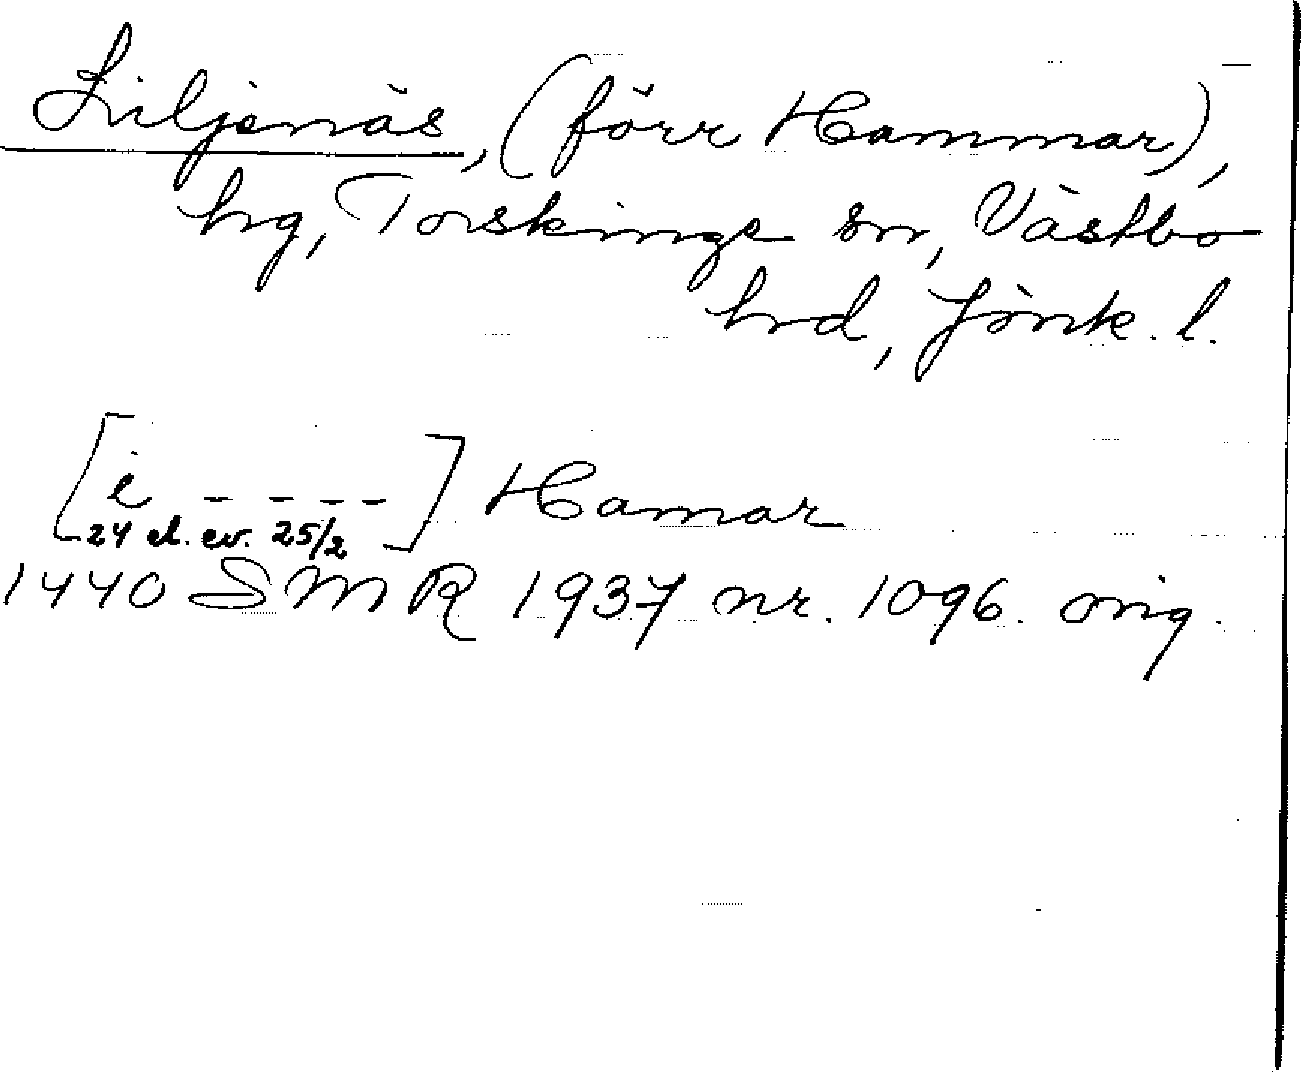 Liljenäs, (förr Hammar),
hg, Torskinge sn, Västbo
hrd, Jönk. l.
[i - - - -] Hamar
24 el. ev. 25/2
1440 SMR 1937 nr. 1096. orig.